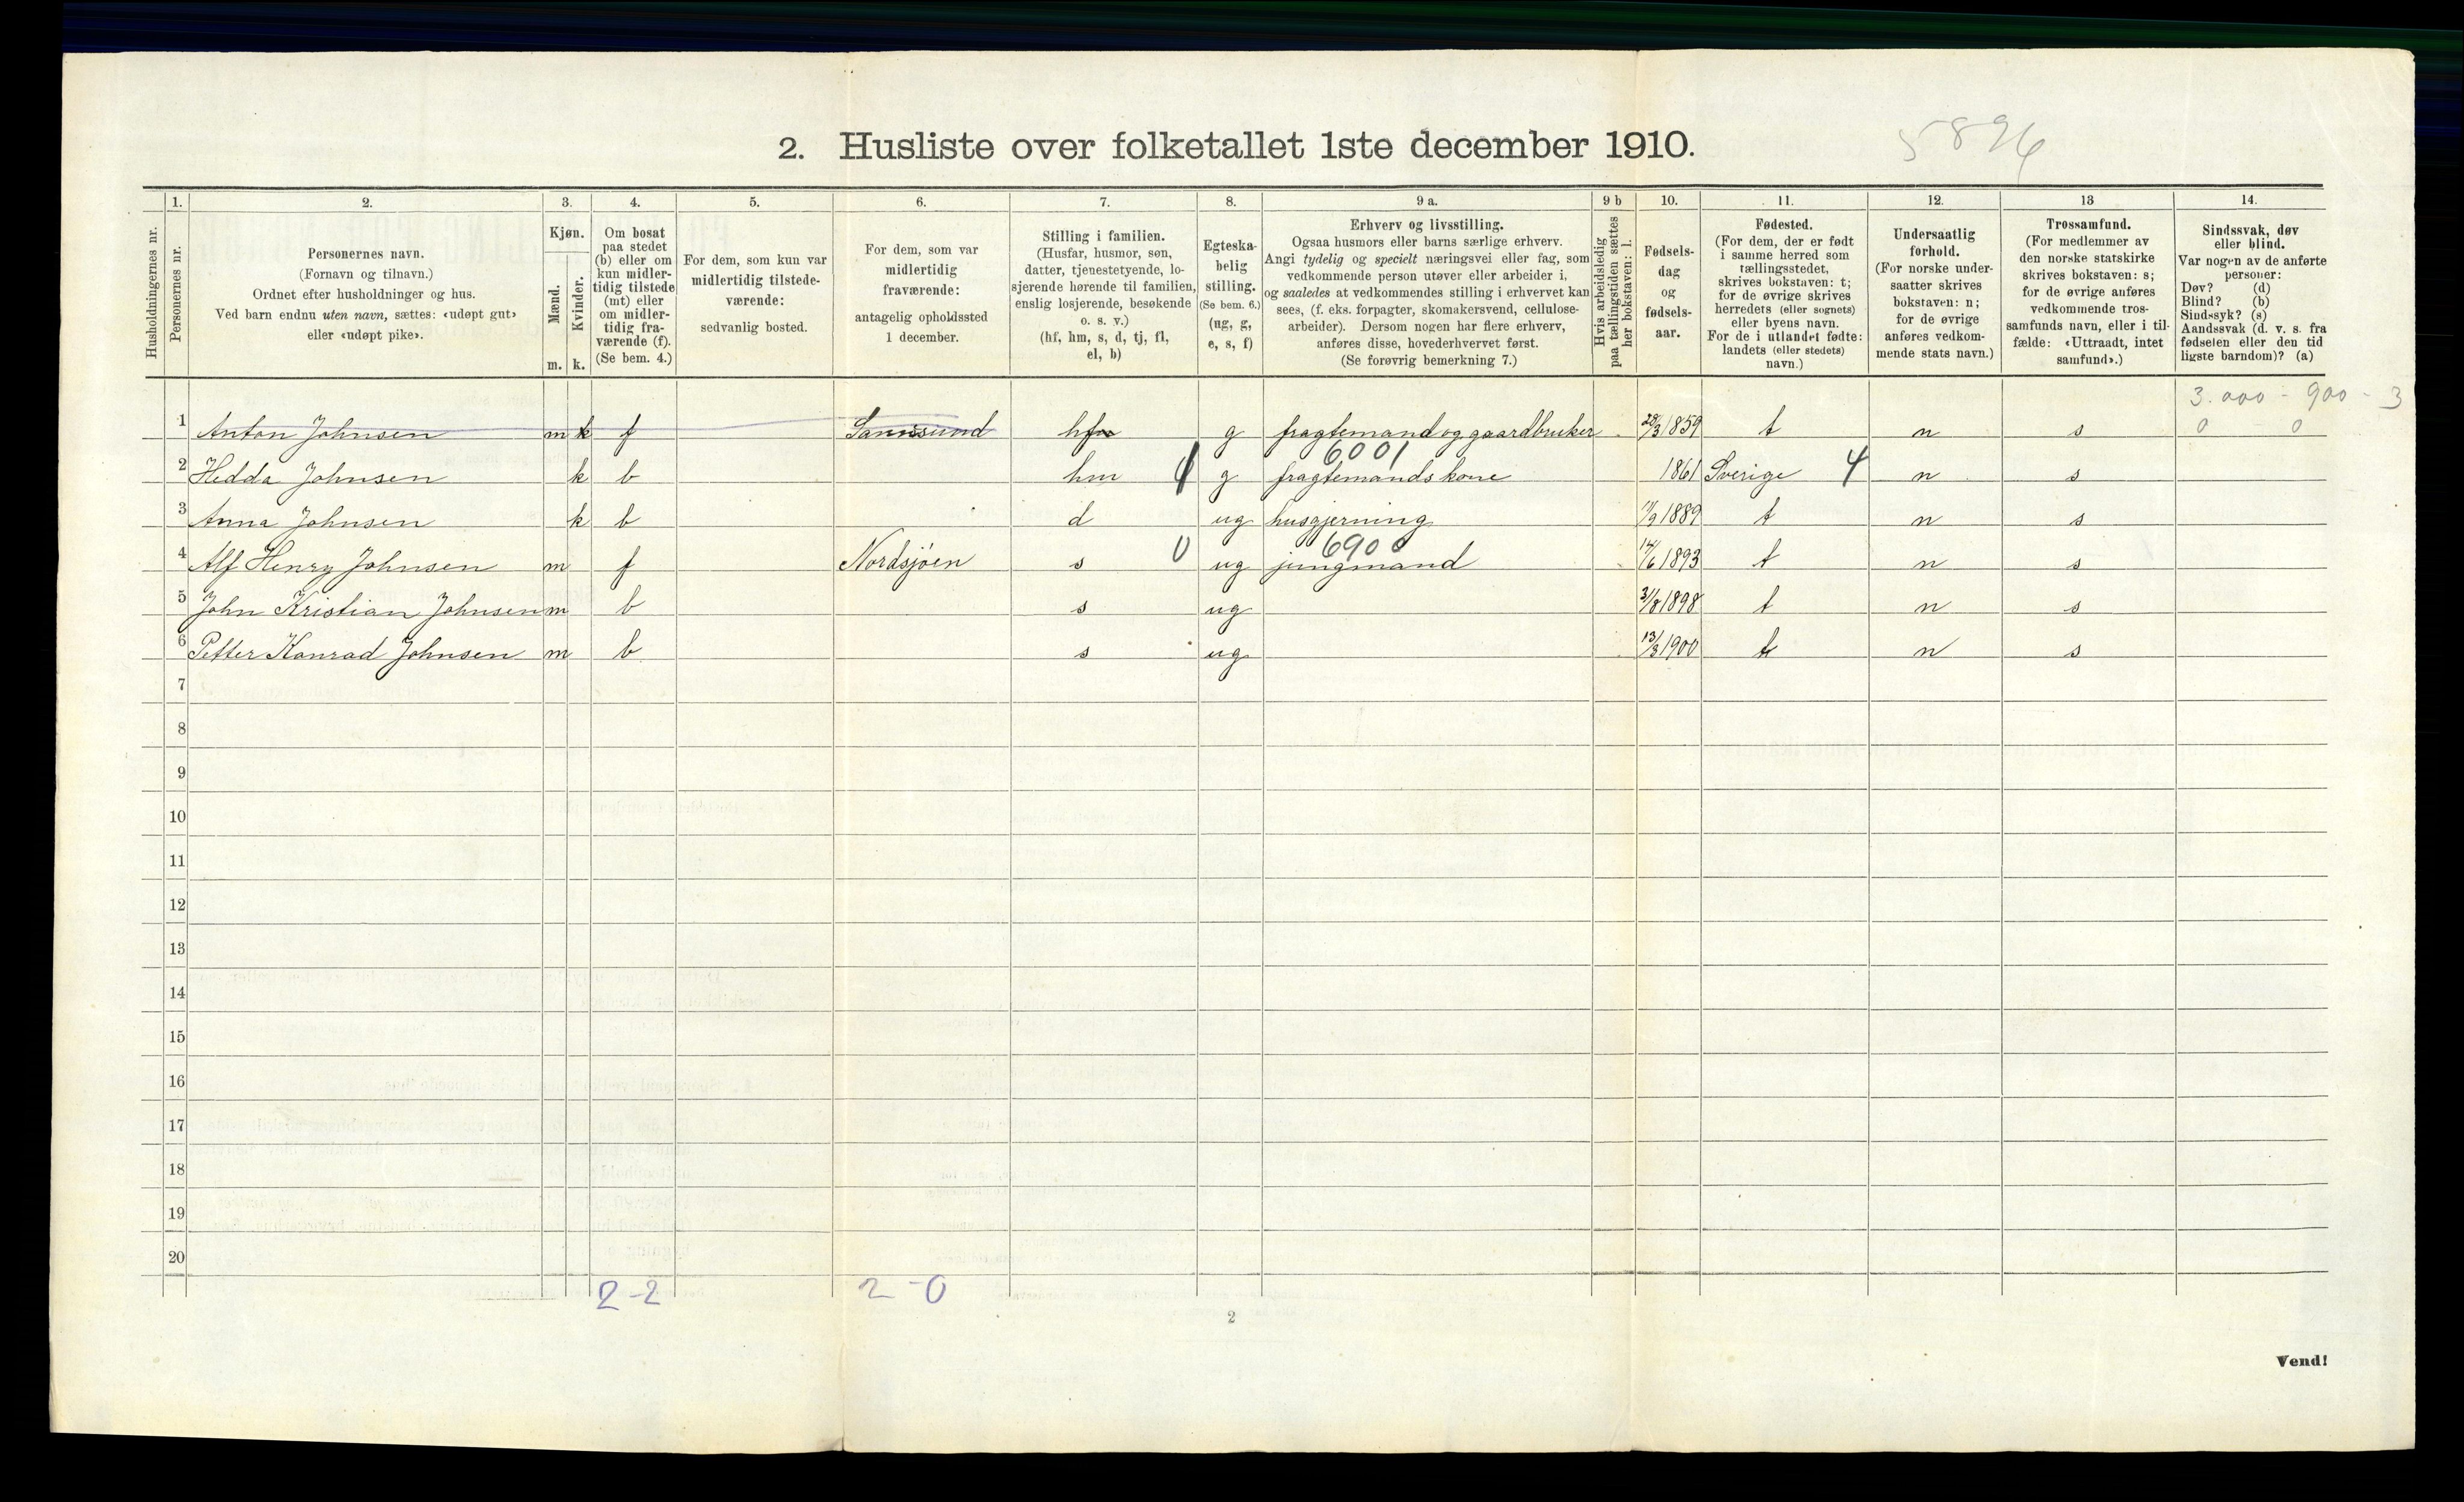 2. Husliste over folketallet 1ste december 1910.
5896
1. 2. 3. 4. 5. 6. 7. 8. 9 a. 9 b 10. 11. 12. 13 14.
Husholdningernes nr.
Personernes nr.
Personernes navn.
(Fornavn og tilnavn.)
Ordnet efter husholdninger og hus.
Ved barn endnu uten navn, sættes: «udøpt gut»
eller «udøpt pike».
Kjøn.
Mænd.
Kvinder.
m. k.
Om bosat
paa stedet
(b) eller om
kun midler-
tidig tilstede
(mt) eller
om midler-
tidig fra-
værende (f).
(Se bem. 4.)
For dem, som kun var
midlertidig tilstede-
værende:
sedvanlig bosted.
For dem, som var
midlertidig
fraværende:
antagelig opholdssted
1 december.
Stilling i familien.
(Husfar, husmor, søn,
datter, tjenestetyende, lo-
sjerende hørende til familien,
enslig losjerende, besøkende
o. s. v.)
(hf, hm, s, d, tj, fl,
el, b)
Egteska-
belig
stilling.
(Se bem. 6.)
(ug, g,
e, s, f)
Erhverv og livsstilling.
Ogsaa husmors eller barns særlige erhverv.
Angi tydelig og specielt næringsvei eller fag, som
vedkommende person utøver eller arbeider i,
og saaledes at vedkommendes stilling i erhvervet kan
sees, (f. eks. forpagter, skomakersvend, cellulose-
arbeider). Dersom nogen har flere erhverv,
anføres disse, hovederhvervet først.
(Se forøvrig bemerkning 7.)
Hvis arbeidsledig
paa tællingstiden sættes
her bokstaven: l.
Fødsels-
dag
og
fødsels-
aar.
Fødested.
(For dem, der er født
i samme herred som
tællingsstedet,
skrives bokstaven: t;
for de øvrige skrives
herredets (eller sognets)
eller byens navn.
For de i utlandet fødte:
landets (eller stedets)
navn.)
Undersaatlig
forhold.
(For norske under-
saatter skrives
bokstaven: n;
for de øvrige
anføres vedkom-
mende stats navn.)
Trossamfund.
(For medlemmer av
den norske statskirke
skrives bokstaven: s;
for de øvrige anføres
vedkommende tros-
samfunds navn, eller i til-
fælde: «Uttraadt, intet
samfund».)
Sindssvak, døv
eller blind.
Var nogen av de anførte
personer:
Døv? (d)
Blind? (b)
Sindssyk? (s)
Aandssvak (d. v. s. fra
fødselen eller den tid-
ligste barndom)? (a)
3.000 - 900 - 3
1 Anton Johnsen m k f Sannsund hf g fragtemand og gaardbruker 28/3 1859 t n s 0 0
6001
2 Hedda Johnsen k b hm g fragtemands kone 1861 Sverige 4 n s
3 Anna Johnsen k b d ug husgjerning 11/9 1889 t n s
6900
4 Alf Henry Johnsen m f Nordsjøen s 0 ug jungmand 14/6 1893 t n s
5 John Kristian Johnsen m b s ug 31/8 1898 t n s
6 Petter Konrad Johnsen m b s ug 13/3 1900 t n s
7
8
9
10
11
12
13
14
15
16
17
18
19
20
2-2 2-0
2
Vend!